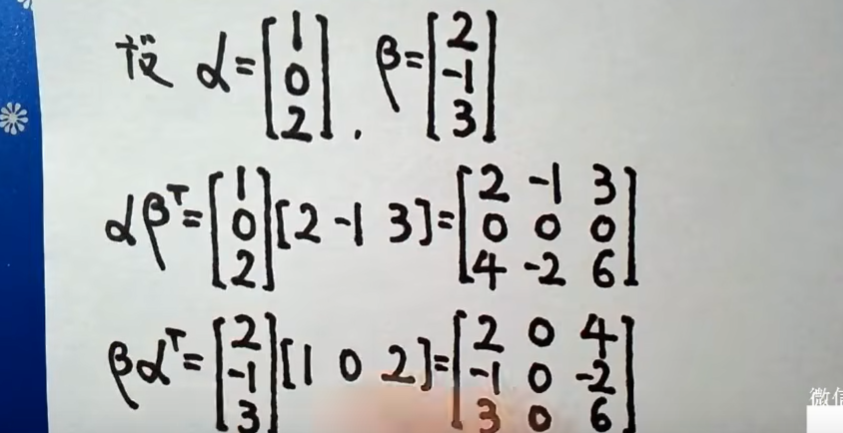 设 α = [1 0 2] , β = [2 -1 3]
αβᵀ = [1 0 2] [2 -1 3] = [2 -1 3 0 0 0 4 -2 6]
βαᵀ = [2 -1 3] [1 0 2] = [2 0 4 -1 0 -2 3 0 6]
微信